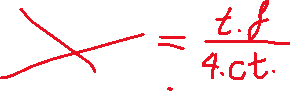 = t.f / 4.ct.